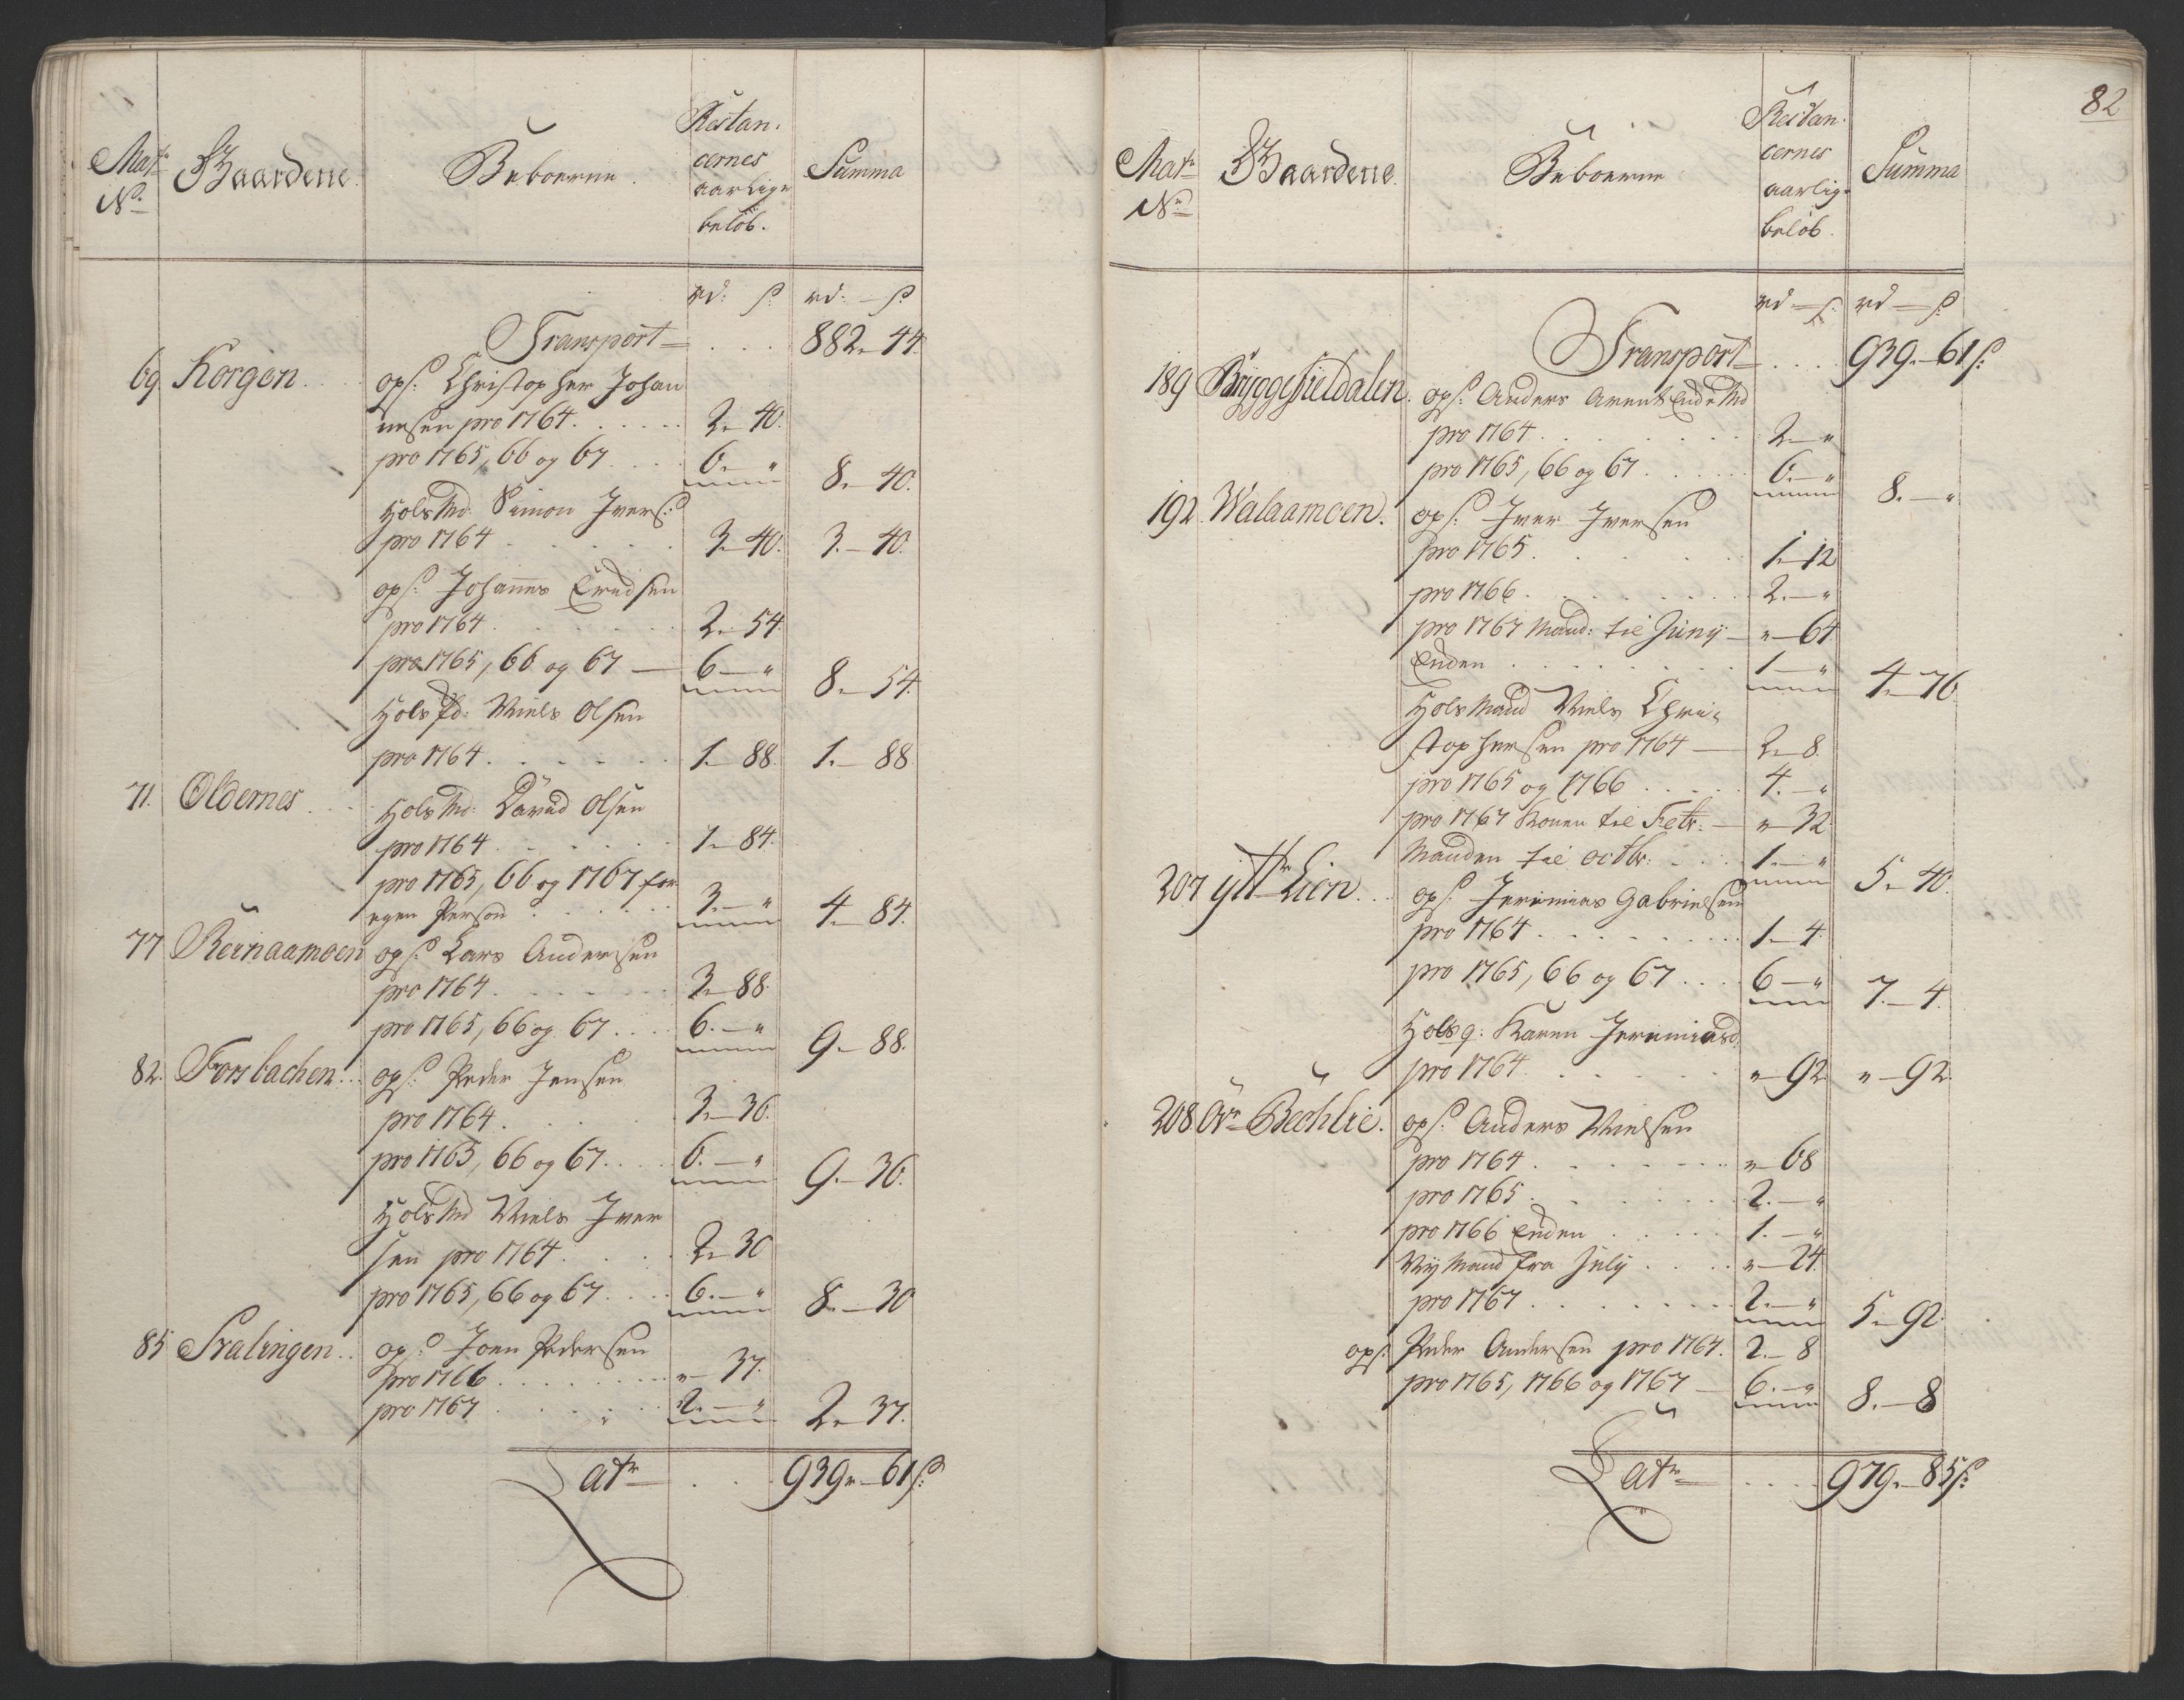 Matr
No
Gaardene.
Beboerne.
Restan:
cernes
aarlige
beløb.
Summa
rd: s: rd. - s:
Transport . . . 882. 44.
69. Korgen . . . ops: Christopher Johan
nesen pro 1764. . . . . . 2. 40.
pro 1765, 66 og 67 . . . . 6. - " 8. 40.
Holsmd: Simon Ivers:
pro 1764 . . . . . . 3. 40. 3. - 40.
ops: Johannes
pro 1764 . . . . . . 2. 54.
pro 1765, 66 og 67 — 6 - " 8. 54.
Niels Olsen
pro 1764 . . . . . . 1. 88. 1. - 88
71. Oldernes . . . Holsmd: David Olsen
pro 1764 . . . . . . 1. 84.
pro 1765, 66 og 1767 for
egen Person . . . . . . 3. - " 4. 84.
77 Reinaamoen ops: Lars Andersen
pro 1764 . . . . . . 3. 88.
pro 1765, 66 og 67 . . . . 6. - " 9. 88.
82. Forsbachen . . . ops: Peder Jensen
pro 1764 . . . . . 3. 36.
pro 1765, 66 og 67 . . . . 6. - " 9. - 36.
Holsmd Niels Iver
sen pro 1764 . . . . . 2. 30
pro 1765, 66 og 67 . . . . 6. - " 8. - 30
85 Stalingen . . ops: Joen Pedersen
pro 1766 . . . . . . . " - 37.
pro 1767 . . . . . . 2. - " 2. 37.
Latr . . 939. - 61 s:
82
Matr
No
Gaardene.
Beboerne
Restan:
cernes
aarlige
beløb.
Summa
rd - s: rd - s:
Transport . . . . 939. - 61 s:
189 Bryggefieldalen. ops: Anders Arents
pro 1764 . . . . . . . 2. - "
pro 1765, 66 og 67 . . . . 6. - " 8. - "
192. Walaamoen. ops: Iver Iversen
pro 1765 . . . . . . 1. 12
pro 1766 . . . . . . . 2. - "
pro 1767 Mand: til Juny — " - 64
Enken . . . . . . . 1 - " 4. 76
Holsmand Niels Chri-
stophersen pro 1764 — 2. 8.
pro 1765 og 1766 . . . . 4. - "
pro 1767 Konen til Febr: — " - 32
Manden til octbr: . . . 1. - " 5. 40.
207 ytt Lien . . . ops: Jeremias Gabrielsen
pro 1764 . . . . . . . 1. 4.
pro 1765, 66 og 67 . . . 6 - " 7. - 4.
Holsq: Karen Jeremiasd:
pro 1764 . . . . . . " - 92. " - 92.
208 Øvr Bechlie. ops: Anders Nielsen
pro 1764 . . . . . . . " - 68
pro 1765 . . . . . . . 2. - "
pro 1766 Enken . . . . . 1. - "
Ny Mand fra July . . . . " - 24
pro 1767 . . . . . . . 2. - " 5. 92.
ops: Peder Andersen pro 1764. 2. - 8
pro 1765, 1766 og 1767 — 6. - " 8. - 8
Latr . . . . 979. - 85 s: